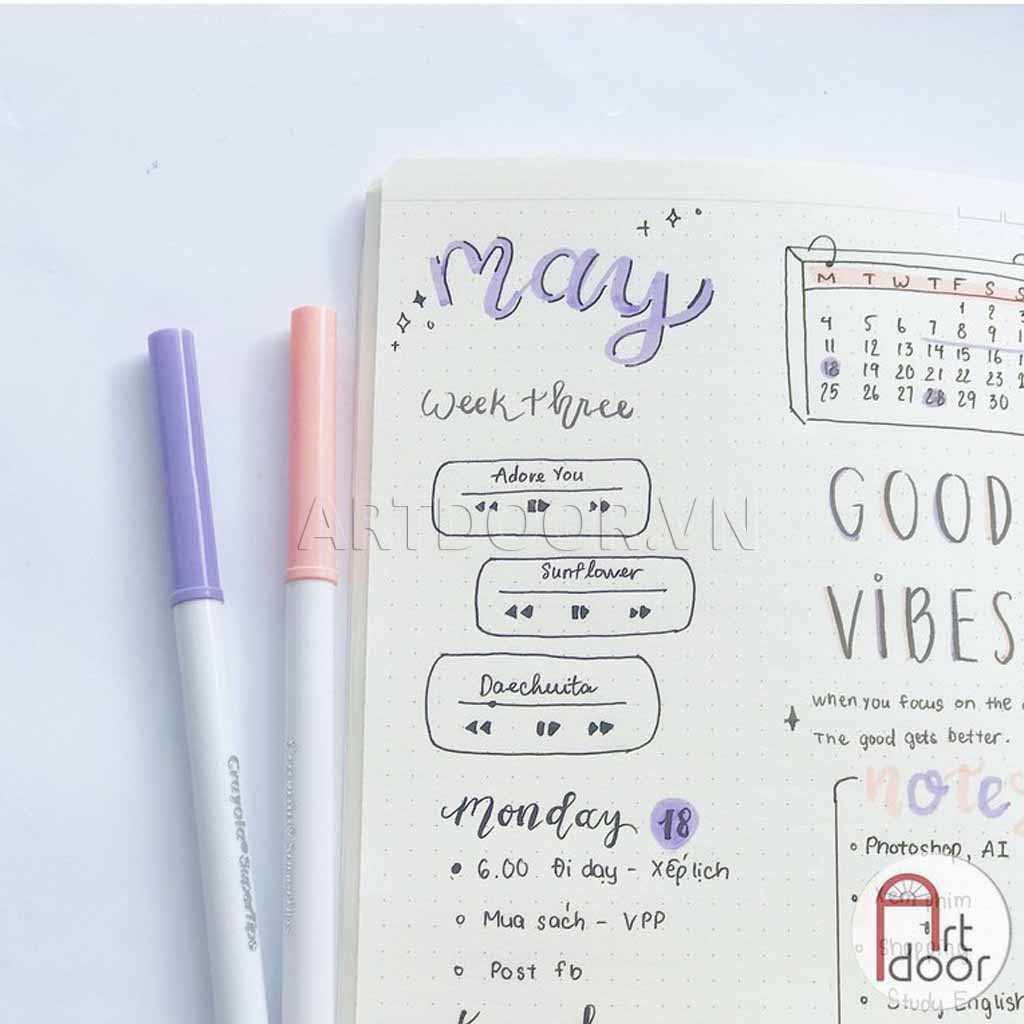 may
week three
Adore You
Sunflower
Daechwita
Monday 18
6.00 Đi dạy - Xếp lịch
Mua sách - VPP
Post fb
M T W T F S S
1 2 3
4 5 6 7 8 9
11 12 13 14 15 16
18 19 20 21 22 23
25 26 27 28 29 30
GOOD
VIBES
When you focus on the
The good gets better.
notes
Photoshop, AI
Xem phim
Shopping
Study English
Crayola SuperTips
Crayola SuperTips
ARTDOOR.VN
Art
door